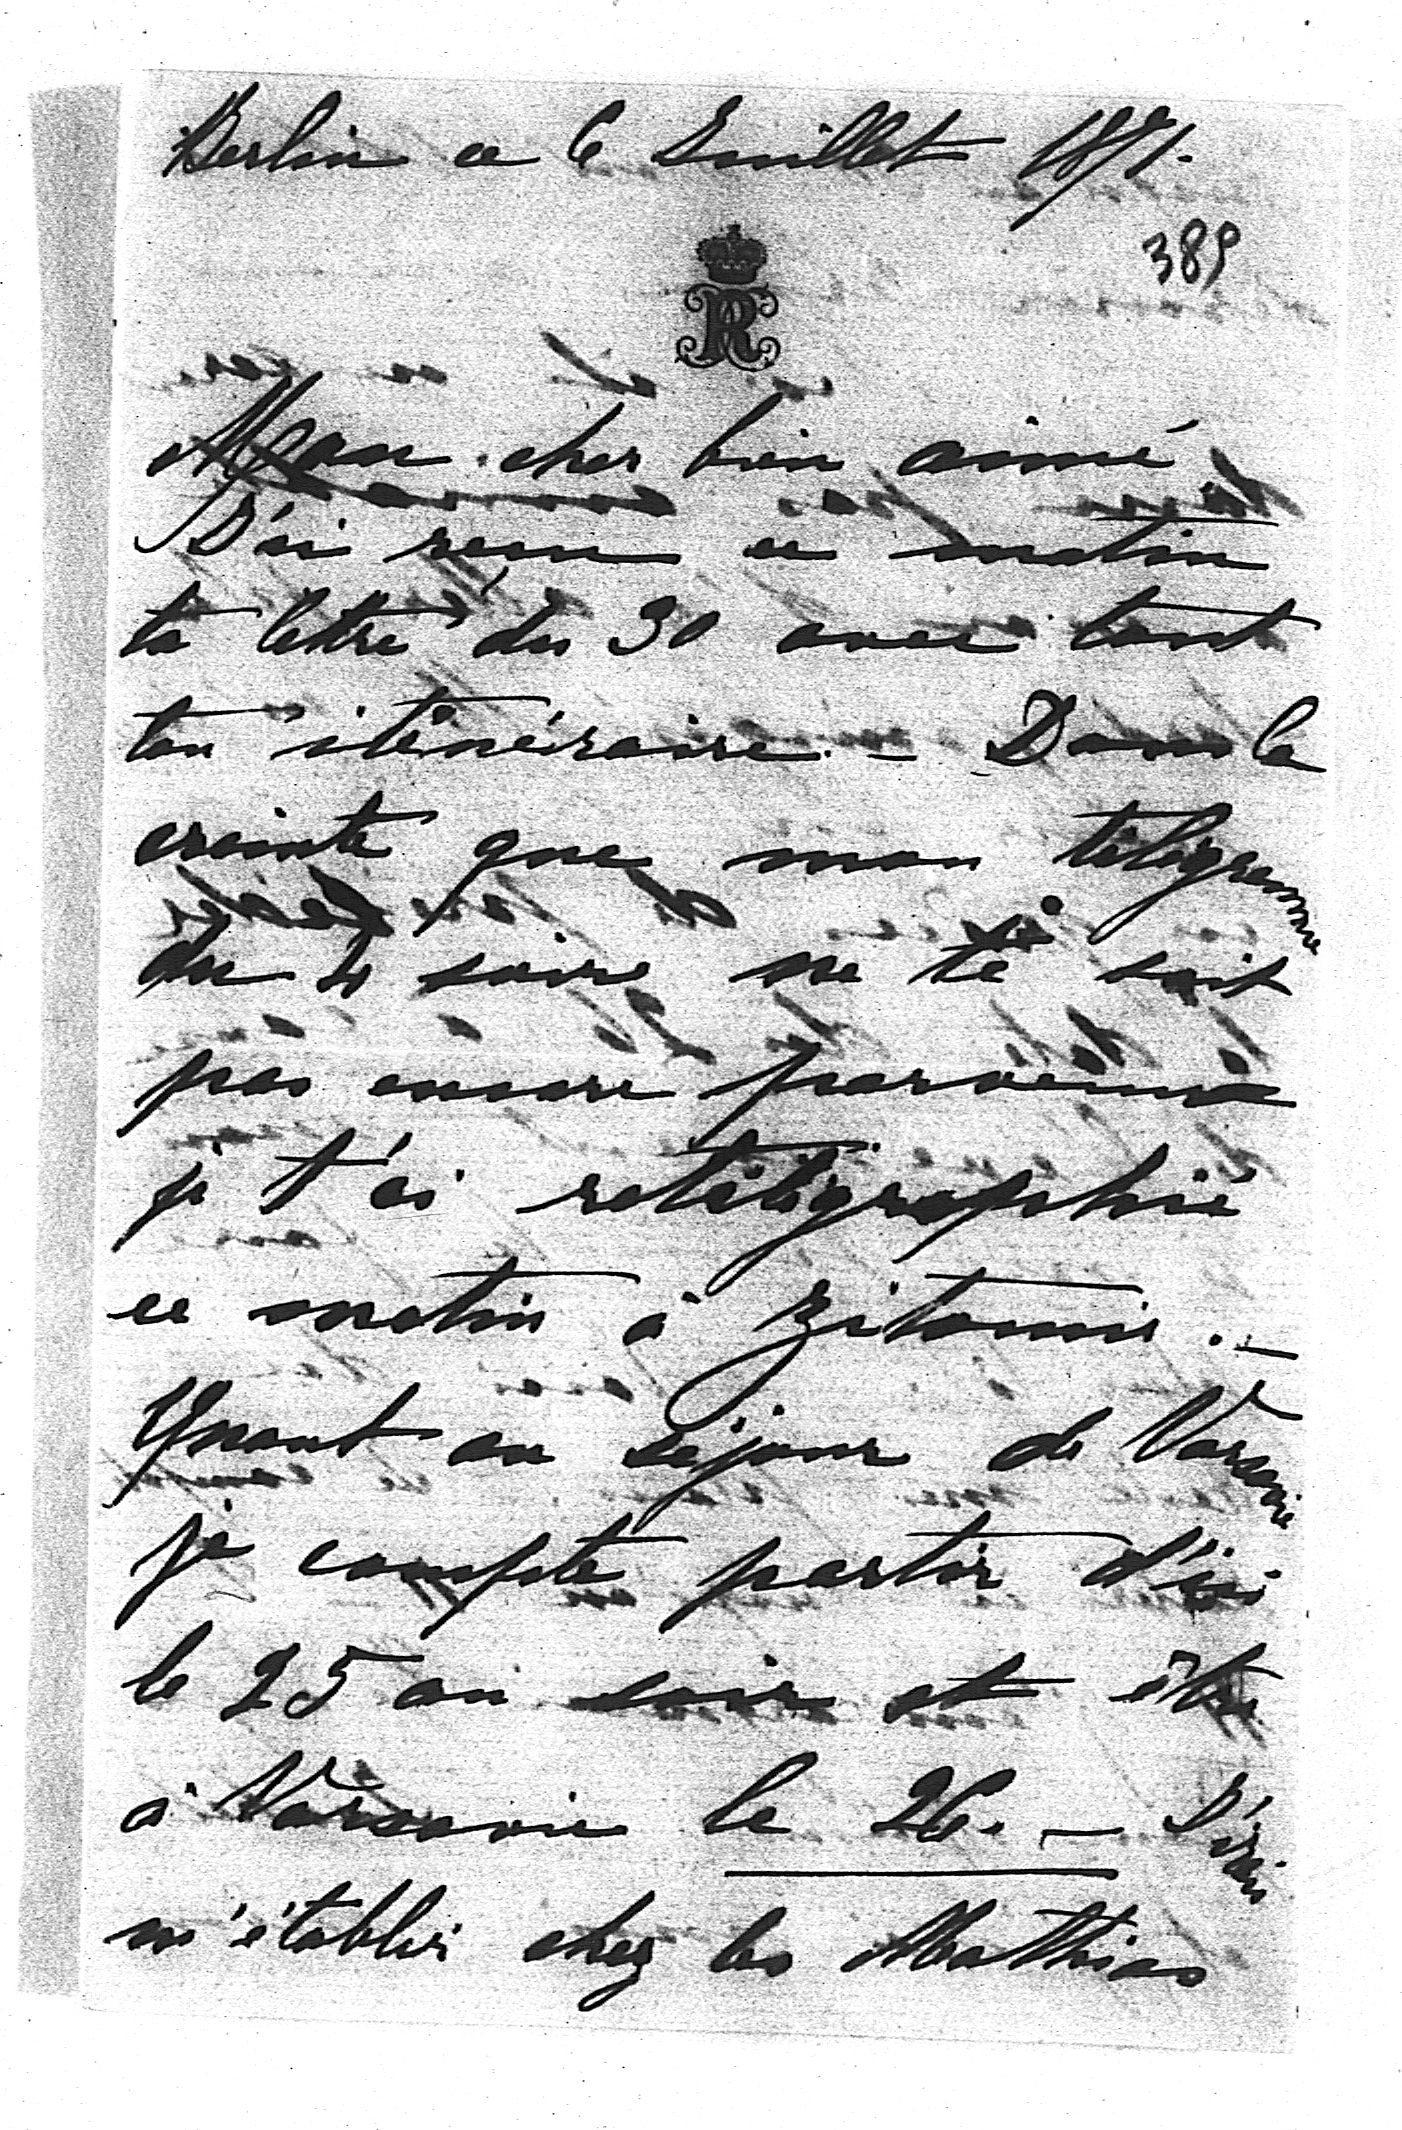 Berlin ce 6 Juillet 1871.
389
R
Mon cher bien aimé
J'ai recu ce matin
ta lettre du 30 avec tout
ton itinéraire. — Dans la
crainte que mon télégramme
du 4 soire ne te soit
pas encore parvenu
je t'ai retélégraphié
ce matin à Zitomir. —
Quant au séjour de Varsovie
je compte partir d'ici
le 25 au soir et être
à Varsovie le 26. — J'irai
m'établir chez les Mathias